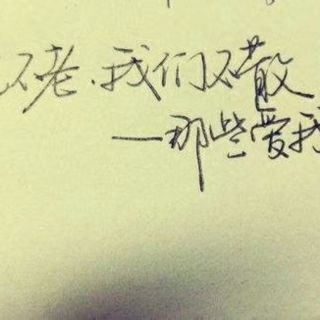 不老、我们不散
—那些爱我